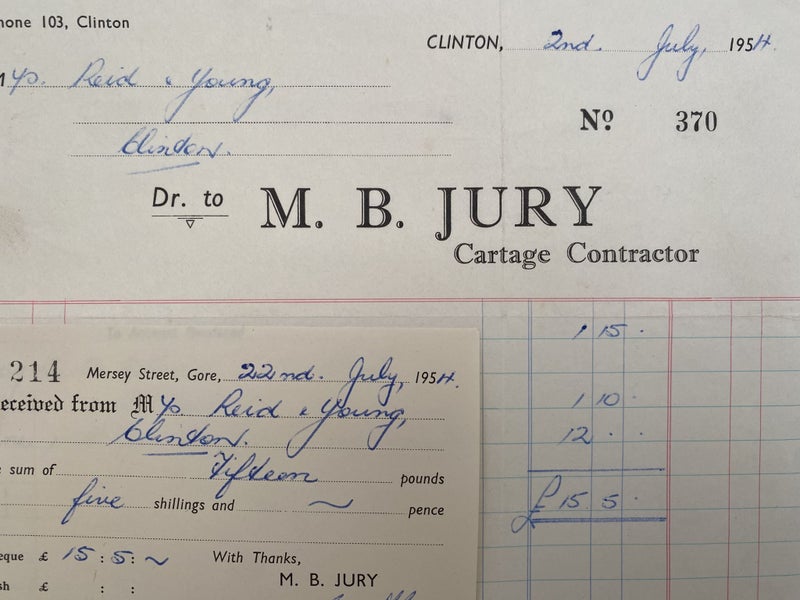 hone 103, Clinton
CLINTON, 2nd. July, 1954.
M/s. Reid & Young,
Clinton.
Nº 370
Dr. to M. B. JURY
Cartage Contractor
1 15 .
1 10 .
12 . .
£15 5 .
214 Mersey Street, Gore, 22nd. July, 1954.
eceived from M/s. Reid & Young,
Clinton.
e sum of Fifteen pounds
five shillings and ~ pence
eque £ 15 : 5 : ~ With Thanks,
sh £ : : M. B. JURY